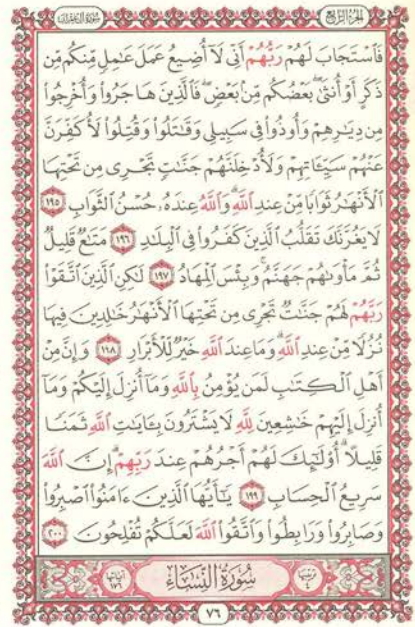 الجزء الرابع
سورة آل عمران
فَٱسْتَجَابَ لَهُمْ رَبُّهُمْ أَنِّى لَآ أُضِيعُ عَمَلَ عَٰمِلٍ مِّنكُم مِّن
ذَكَرٍ أَوْ أُنثَىٰ ۖ بَعْضُكُم مِّنۢ بَعْضٍ ۖ فَٱلَّذِينَ هَاجَرُوا۟ وَأُخْرِجُوا۟
مِن دِيَٰرِهِمْ وَأُوذُوا۟ فِى سَبِيلِى وَقَٰتَلُوا۟ وَقُتِلُوا۟ لَأُكَفِّرَنَّ
عَنْهُمْ سَيِّـَٔاتِهِمْ وَلَأُدْخِلَنَّهُمْ جَنَّٰتٍ تَجْرِى مِن تَحْتِهَا
ٱلْأَنْهَٰرُ ثَوَابًا مِّنْ عِندِ ٱللَّهِ ۗ وَٱللَّهُ عِندَهُۥ حُسْنُ ٱلثَّوَابِ ١٩٥
لَا يَغُرَّنَّكَ تَقَلُّبُ ٱلَّذِينَ كَفَرُوا۟ فِى ٱلْبِلَٰدِ ١٩٦ مَتَٰعٌ قَلِيلٌ
ثُمَّ مَأْوَىٰهُمْ جَهَنَّمُ ۚ وَبِئْسَ ٱلْمِهَادُ ١٩٧ لَٰكِنِ ٱلَّذِينَ ٱتَّقَوْا۟
رَبَّهُمْ لَهُمْ جَنَّٰتٌ تَجْرِى مِن تَحْتِهَا ٱلْأَنْهَٰرُ خَٰلِدِينَ فِيهَا
نُزُلًا مِّنْ عِندِ ٱللَّهِ ۗ وَمَا عِندَ ٱللَّهِ خَيْرٌ لِّلْأَبْرَارِ ١٩٨ وَإِنَّ مِنْ
أَهْلِ ٱلْكِتَٰبِ لَمَن يُؤْمِنُ بِٱللَّهِ وَمَآ أُنزِلَ إِلَيْكُمْ وَمَآ
أُنزِلَ إِلَيْهِمْ خَٰشِعِينَ لِلَّهِ لَا يَشْتَرُونَ بِـَٔايَٰتِ ٱللَّهِ ثَمَنًا
قَلِيلًا ۗ أُو۟لَٰٓئِكَ لَهُمْ أَجْرُهُمْ عِندَ رَبِّهِمْ ۗ إِنَّ ٱللَّهَ
سَرِيعُ ٱلْحِسَابِ ١٩٩ يَٰٓأَيُّهَا ٱلَّذِينَ ءَامَنُوا۟ ٱصْبِرُوا۟
وَصَابِرُوا۟ وَرَابِطُوا۟ وَٱتَّقُوا۟ ٱللَّهَ لَعَلَّكُمْ تُفْلِحُونَ ٢٠٠
ترتيبها ٤ سُورَةُ ٱلنِّسَاءِ آياتها ١٧٦
٧٦